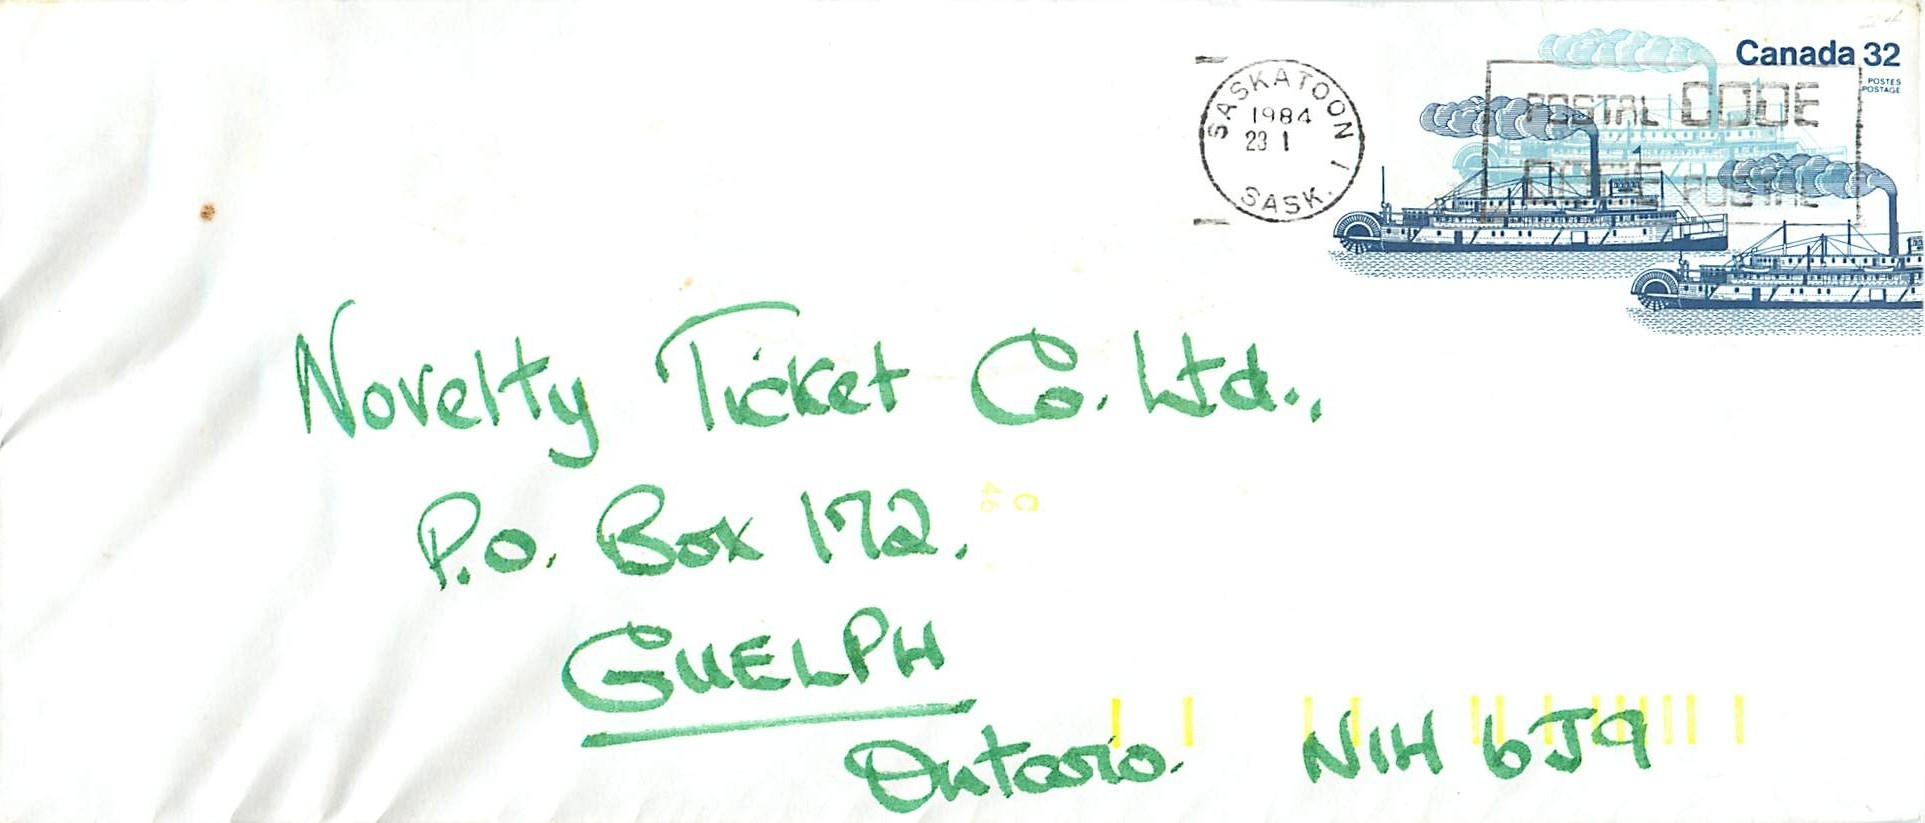 Canada 32
POSTES
POSTAGE
SASKATOON 1
1984
23 1
SASK.
POSTAL CODE
CODE POSTAL
Novelty Ticket Co. Ltd.,
P.O. Box 172.
C
46
GUELPH
Ontario. N1H 6J9